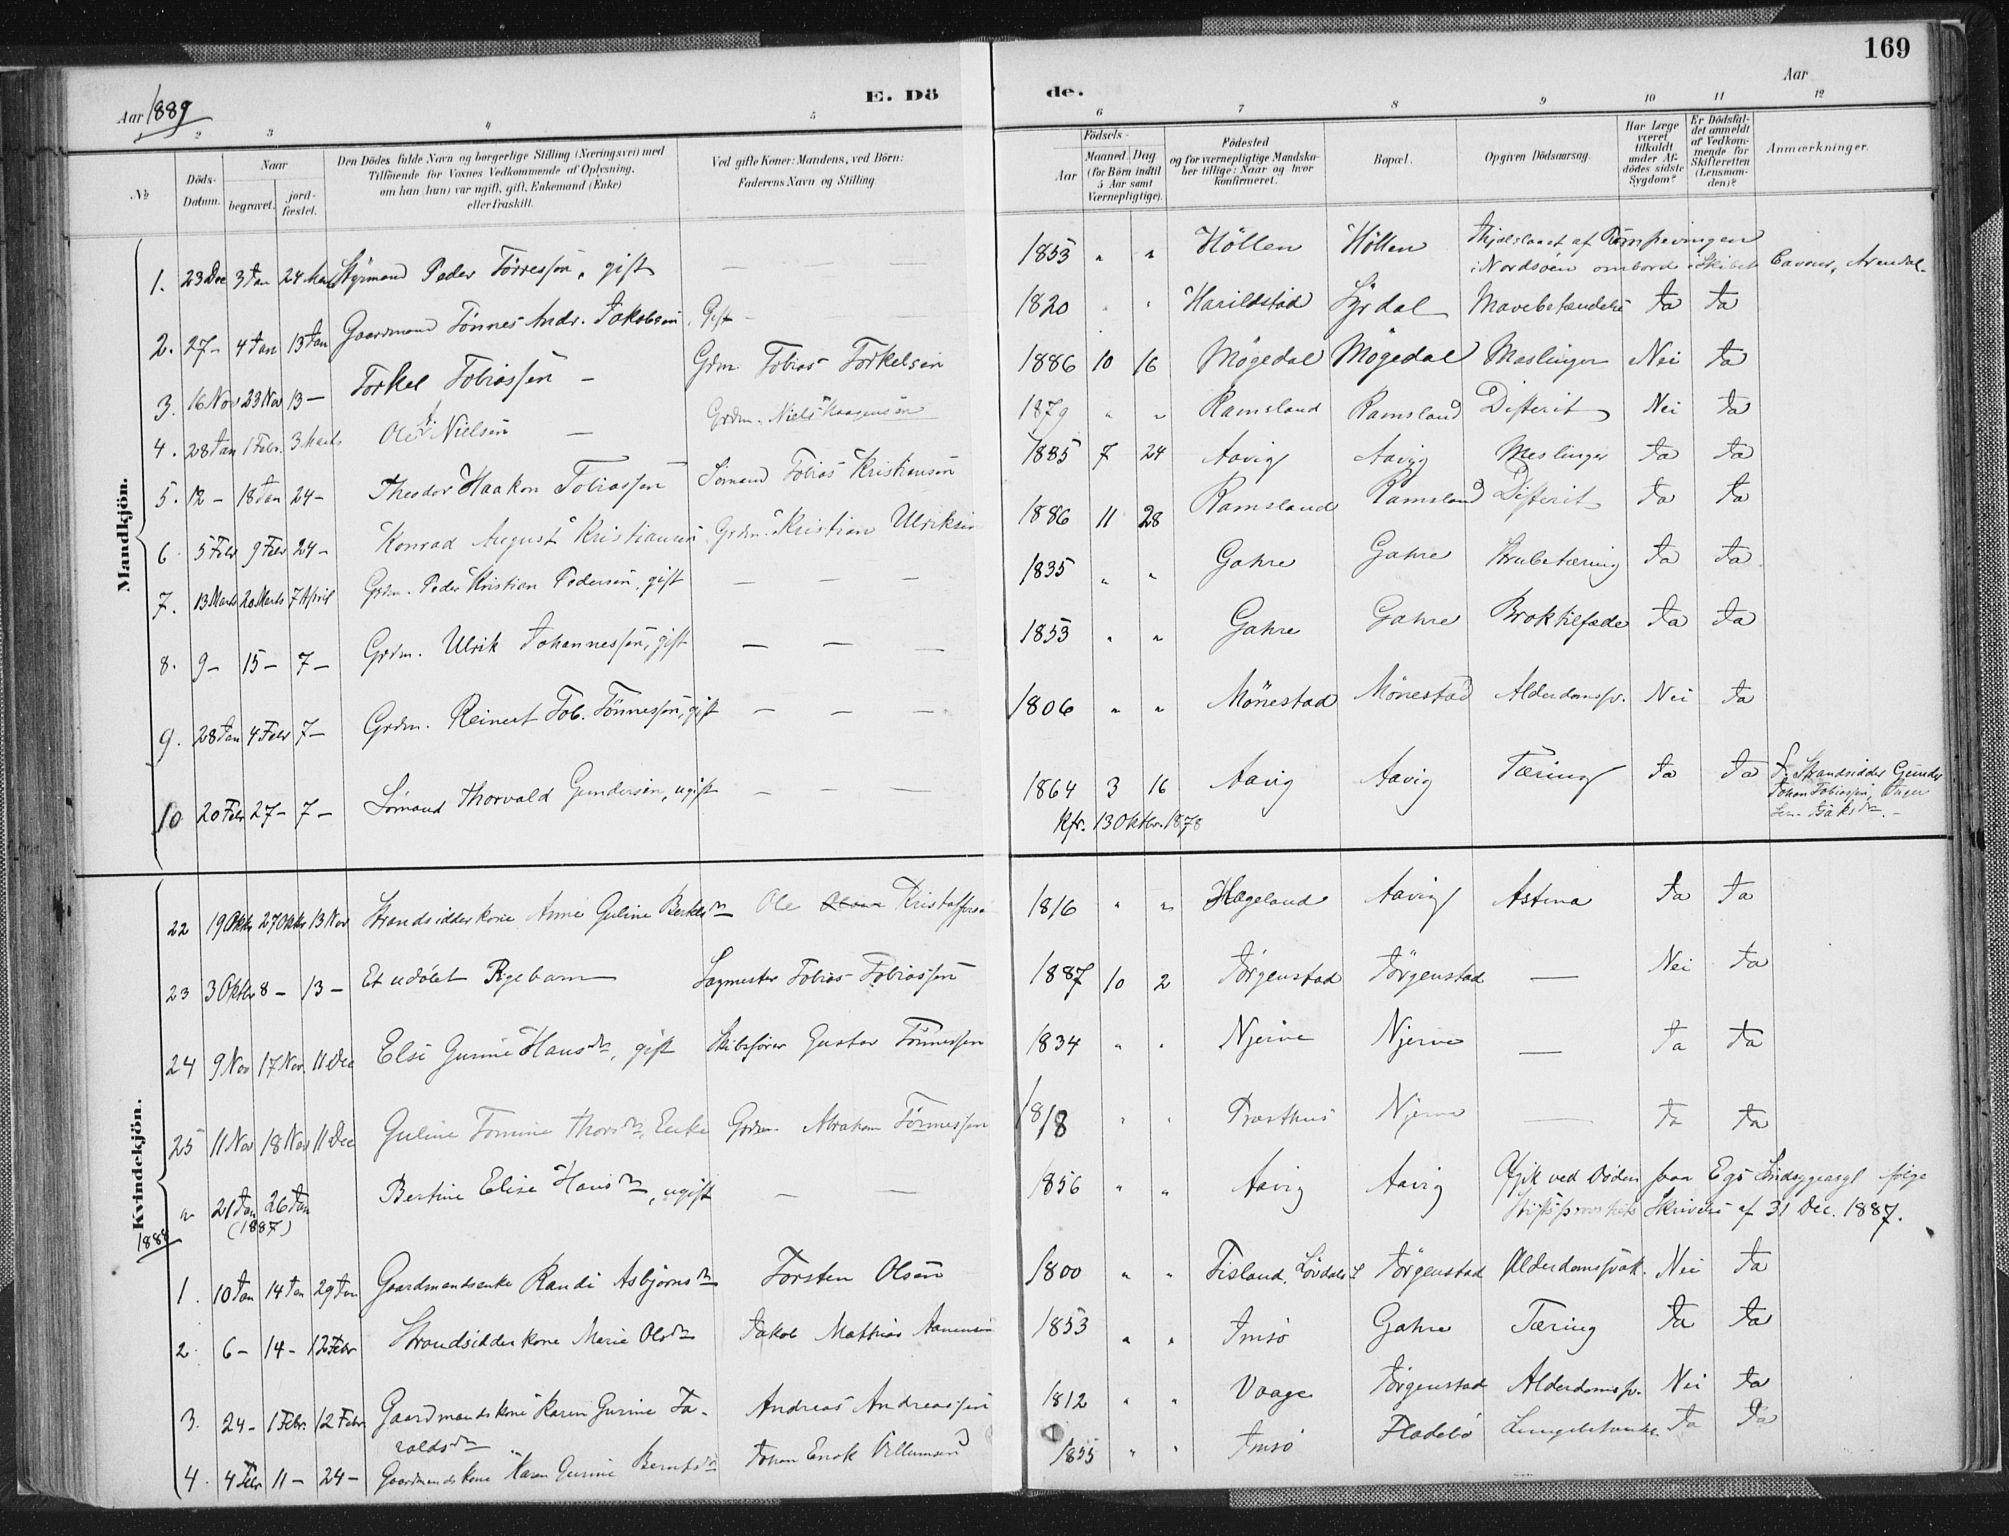 169
Aar 1889
E. Dö
de.
Aar
2 3 4 5 6 7 8 9 10 11 12
No
Döds-Datum.
Naar
begravet.
jord-fæstet.
Den Dödes fulde Navn og borgerlige Stilling (Næringsvei) med
Tilföiende for Voxnes Vedkommende af Oplysning,
om han (hun) var ugift, gift, Enkemand (Enke)
eller fraskilt.
Ved gifte Koner: Mandens, ved Börn:
Faderens Navn og Stilling.
Födsels-
Aar
Maaned. Dag
(for Börn indtil
5 Aar samt
Værnepligtige).
Födested
og for værnepligtige Mandska-
ber tillige: Naar og hvor
konfirmeret.
Bopæl.
Opgiven Dödsaarsag.
Har Læge
været
tilkaldt
under Af-
dödes sidste
Sygdom?
Er Dödsfal-
det anmeldt
af Vedkom-
mende for
Skifteretten
(Lensman-
den)?
Anmærkninger.
Mandkjön.
1. 23 Dec 3 Jan 24 Marts Styrmand Peder Törressen, gift — — — 1853 " " Höllen Höllen Ihjelslaaet af Römpevingen
i Nordsöen ombord i Skibet Cavour, Arendal.
2. 27 - 4 Jan 13 Jan Gaardmand Tönnes Andr. Jakobsen. Gift — 1820 " " Harildstad Lyrdal Mavebetændelse Ja Ja
3. 16 Nov 23 Nov 13 — Torkel Tobiassen — Grdm. Tobias Torkelsen 1886 10 16 Mögedal Mögedal Meslinger Nei Ja
4. 28 Jan 1 Febr. 3 Marts Ole J. Nielsen — Grdm. Niels Haagensen 1879 " " Ramsland Ramsland Difterit Nei Ja
5. 12 - 18 Jan 24 - Theodor Haakon Tobiassen Sömand Tobias Kristiansen 1885 7 24 Aavig Aavig Meslinger Ja Ja
6. 5 Febr 9 Febr 24 - Konrad August Kristiansen Grdm. Kristian Ulriksen 1886 11 28 Ramsland Ramsland Difterit Ja Ja
7. 13 Marts 20 Marts 7 April Grdm. Peder Kristian Pedersen, gift — — — 1835 " " Gahre Gahre Strubetæring Ja Ja
8. 9 - 15 - 7 - Grdm. Ulrik Johannessen, gift — — — 1853 " " Gahre Gahre Broktilfælde Ja Ja
9. 28 Jan 4 Febr 7 - Grdm. Reinert Tob. Tönnessen, gift — — — 1806 " " Mönestad Mönestad Alderdomssv. Nei Ja
10 20 Febr 27 - 7 - Sömand Thorvald Gundersen, ugift — — — 1864 3 16 Aavig Aavig Tæring Ja Ja F. Strandsidder Gunder
Kfr. 13 Oktbr. 1878 Johan Tobiassen,
Kvindekjön.
22 19 Oktbr 27 Oktbr 13 Nov Strandsidderkone Anne Guline Bertelsdr Ole Kristoffersen 1816 " " Hægeland Aavig Astma Ja Ja
23 3 Oktbr 8 - 13 - Et udöbt Pigebarn Sagmester Tobias Tobiassen 1887 10 2 Jörgenstad Jörgenstad — Nei Ja
24 9 Nov 17 Nov 11 Dec Elsi Gurine Hansdr, gift Skibsförer Gustav Tönnessen 1834 " " Njerve Njerve — Ja Ja
25 11 Nov 18 Nov 11 Dec Guline Tomine Thorsdr, Enke Grdm. Abraham Tönnessen 1818 " " Præsthus Njerve — Ja Ja
" 21 Jan 26 Jan Bertine Elise Hansdr, ugift — — 1856 " " Aavig Aavig Afgik ved Döden paa Egs Sindssygeasyl fölge
(1887) Stiftsprovstiets Skrivelse af 31 Dec. 1887.
1888
1. 10 Jan 14 Jan 29 Jan Gaardmandsenke Randi Asbjörnsdr Torsten Olsen 1800 " " Fisland, Lövdals S. Jörgenstad Alderdomssvak. Nei Ja
2. 6 - 14 - 12 Febr Strandsidderkone Marie Olsdr Jakob Mathias Aanensen 1853 " " Imsö Gahre Tæring Ja Ja
3. 24 - 1 Febr. 12 Febr Gaardmandskone Karen Gurine Ta- Andreas Andreassen 1812 " " Vaage Jörgenstad Alderdomssv. Nei Ja
raldsdr
4. 4 Febr 11 - 24 - Gaardmandskone Karen Gurine Berntsdr Johan Enok Villumsen 1855 " " Imsö Flodebö Lungebetændelse Ja Ja